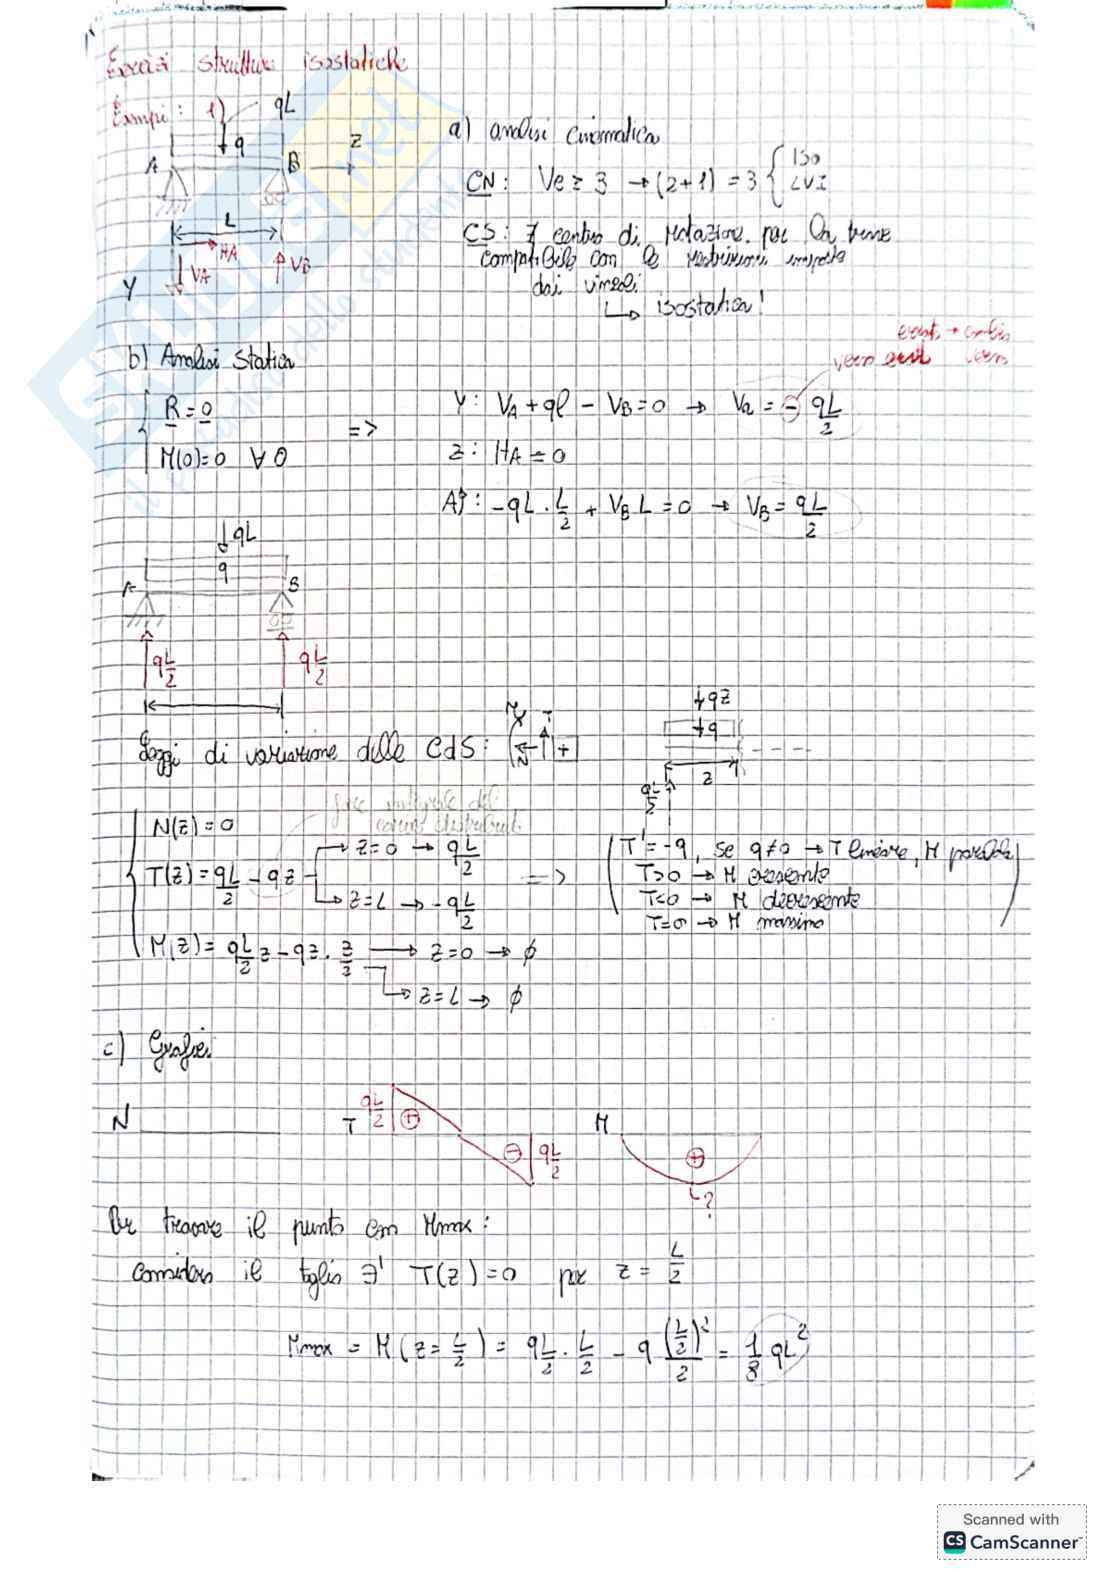 Esercizi strutture isostatiche
Esempi: 1)
qL
q
z
A
B
L
HA
VA
VB
Y
a) analisi cinematica
CN: Ve ≥ 3 → (2+1) = 3 { Iso
LVI
CS: ∄ centro di rotazione per la trave
compatibile con le restrizioni imposte
dai vincoli
↳ isostatica!
b) Analisi Statica
verso
R = 0
M(O)=0 ∀ O
=>
Y: VA + ql - VB = 0 → Va = - qL/2
z: HA = 0
A): -qL · L/2 + VB L = 0 → VB = qL/2
qL
q
A
B
qL/2
qL/2
Leggi di variazione delle CdS:
M
T
N
+
qz
q
z
qL/2
N(z) = 0
T(z) = qL/2 - qz
z=0 → qL/2
z=L → -qL/2
M(z) = qL/2 z - qz · z/2
z=0 → ϕ
z=L → ϕ
=>
T' = -q, se q≠0 → T lineare, M parabola
T>0 → M crescente
T<0 → M decrescente
T=0 → M massimo
c) Grafici
N
T
qL/2
+
-
qL/2
M
+
?
Per trovare il punto con Mmax:
considero il taglio ∋' T(z)=0 per z = L/2
Mmax = M(z = L/2) = qL/2 · L/2 - q (L/2)²/2 = 1/8 qL²
SKUOLA.net
il paradiso dello studente
Scanned with
CS CamScanner